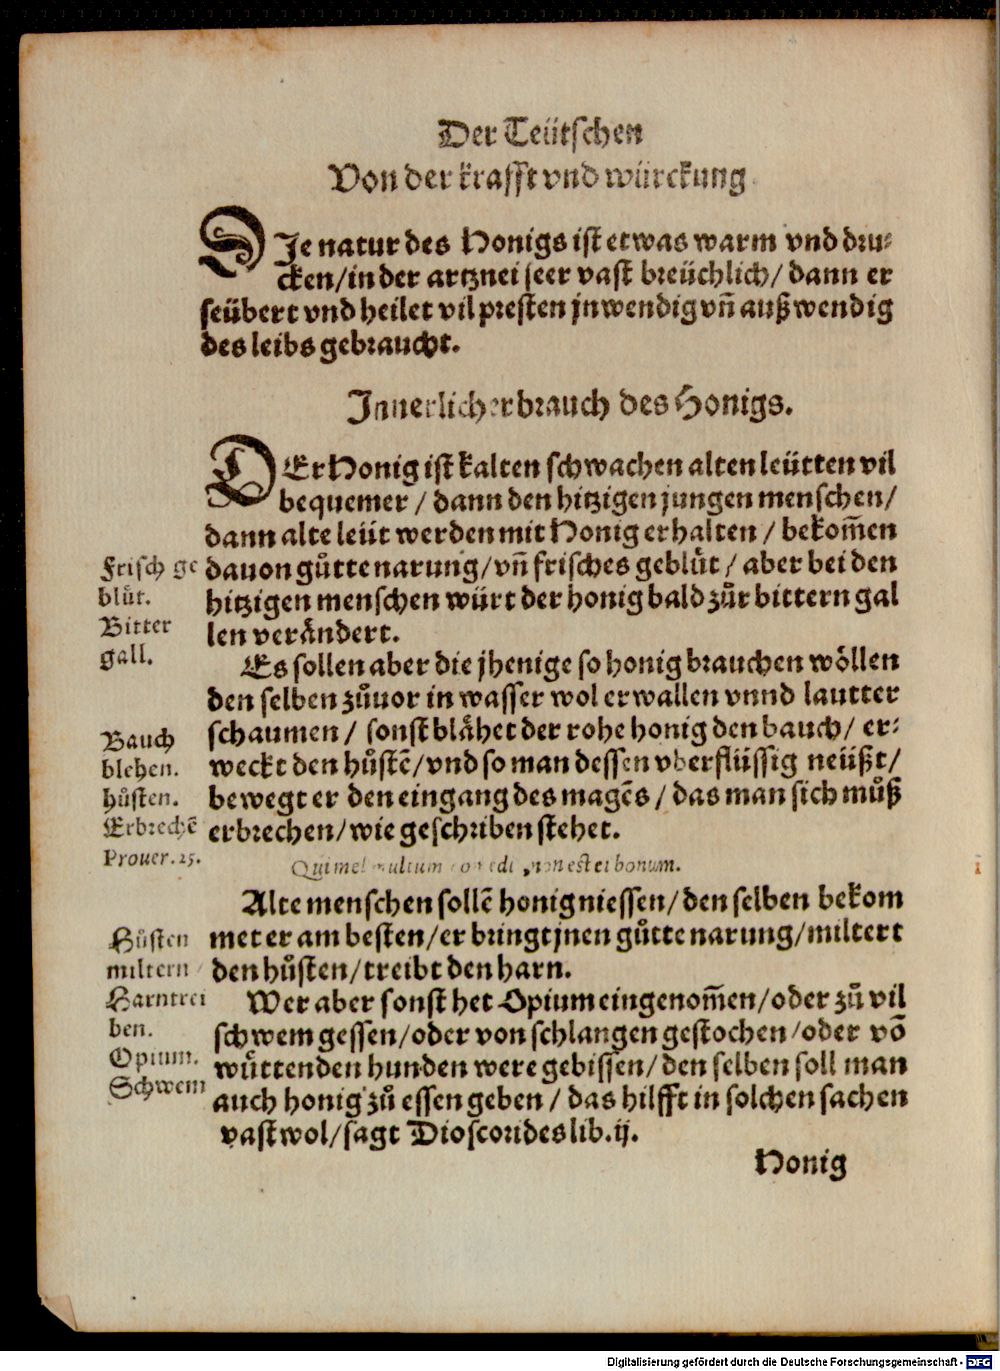 Der Teütschen
Von der krafft vnd würckung
DJe natur des Honigs ist etwas warm vnd dru⸗
cken/in der artznei seer vast breüchlich/ dann er
seübert vnd heilet vil presten jnwendig vñ außwendig
des leibs gebraucht.
Jnnerlicher brauch des Honigs.
DEr Honig ist kalten schwachen alten leütten vil
bequemer / dann den hitzigen jungen menschen/
dann alte leüt werden mit Honig erhalten / bekom̃en
dauon gůtte narung/vñ frisches geblůt / aber bei den
hitzigen menschen würt der honig bald zůr bittern gal
len veråndert.
Frisch ge
blůt.
Bitter
gall.
Es sollen aber die jhenige so honig brauchen wôllen
den selben zůuor in wasser wol erwallen vnnd lautter
schaumen / sonst blåhet der rohe honig den bauch/ er⸗
weckt den hůstẽ/vnd so man dessen vberflüssig neüßt/
bewegt er den eingang des magẽs / das man sich můß
erbrechen/wie geschriben stehet.
Bauch
blehen.
hůsten.
Erbrechẽ
Prouer. 25.
Qui mel multum comedit, non est ei bonum.
Alte menschen sollẽ honig niessen/den selben bekom
met er am besten/er bringt jnen gůtte narung/miltert
den hůsten/treibt den harn.
Hůsten
miltern
Harntrei
ben.
Wer aber sonst het Opium eingenom̃en/oder zů vil
schwem gessen/oder von schlangen gestochen/oder võ
wůttenden hunden were gebissen/den selben soll man
auch honig zů essen geben / das hilfft in solchen sachen
vast wol/sagt Dioscorides lib. ij.
Opium.
Schwem
Honig
Digitalisierung gefördert durch die Deutsche Forschungsgemeinschaft - DFG